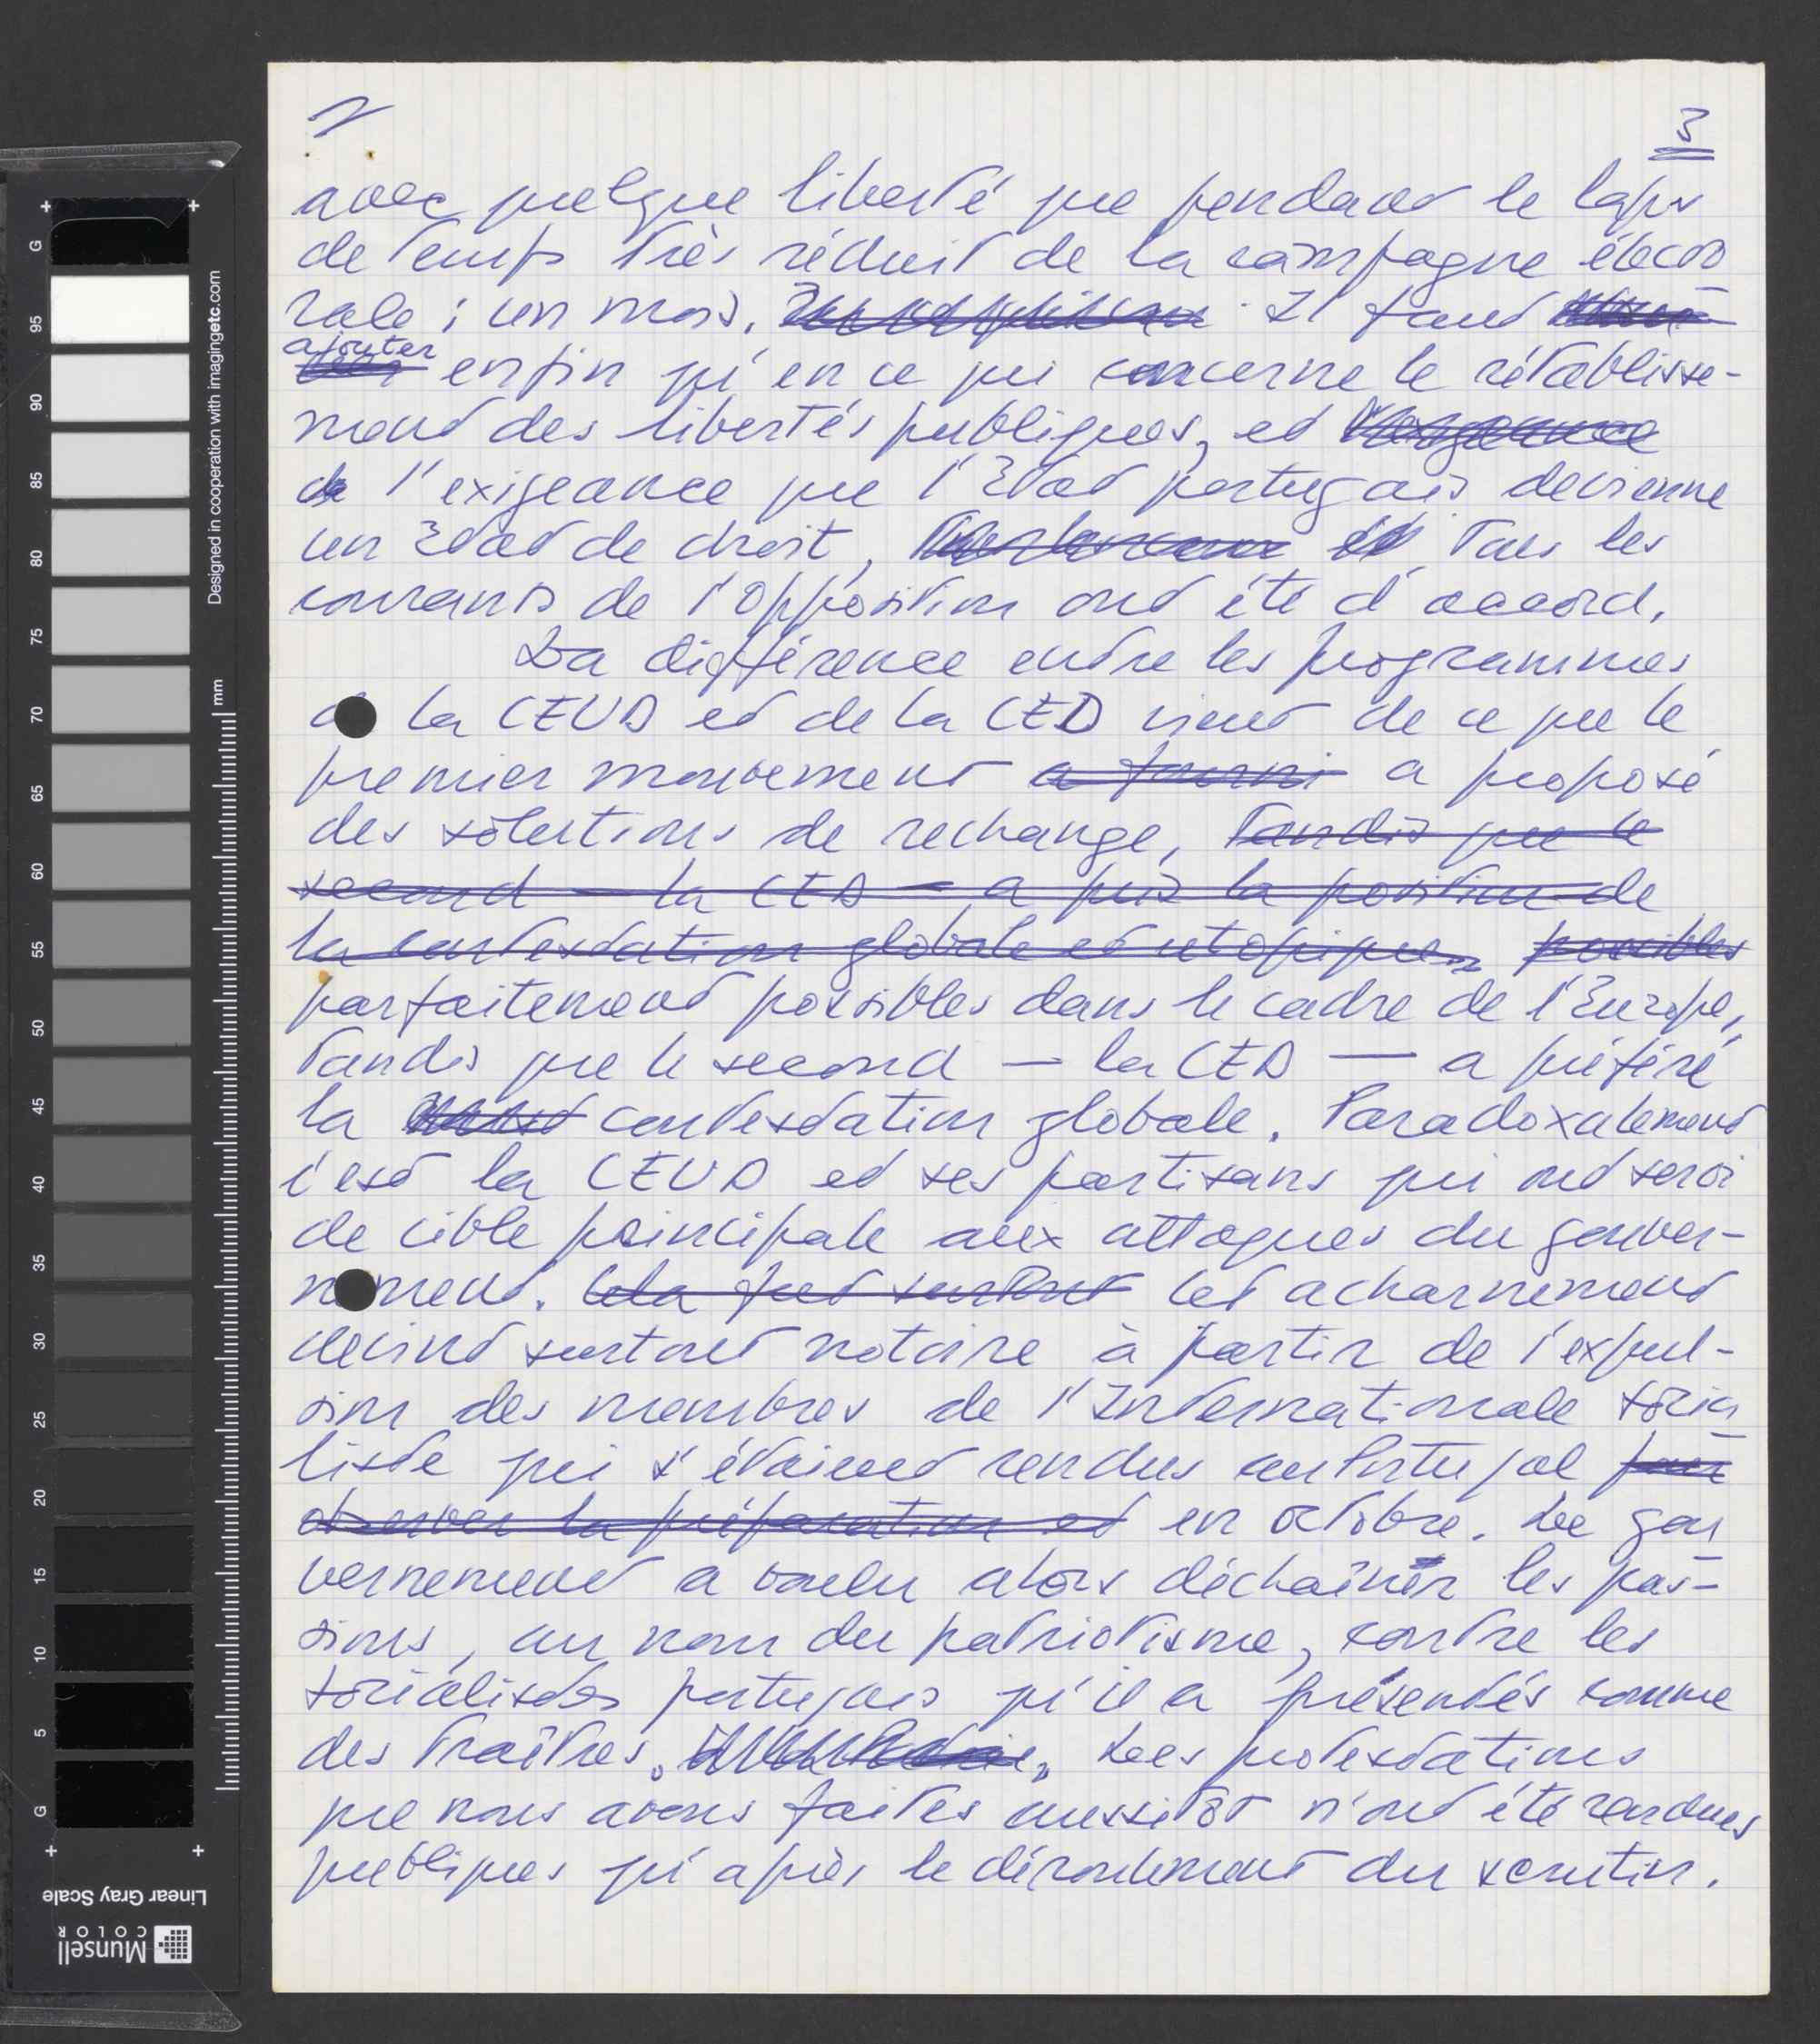 3
avec quelque liberté que pendant le laps
de temps très réduit de la campagne électo
rale ; un mois. Il faut
ajouter enfin qu'en ce qui concerne le rétablisse-
ment des libertés publiques, et
de l'exigeance que l'Etat portugais devienne
un Etat de droit, tous les
courants de l'Opposition ont été d'accord.
La différence entre les programmes
la CEUD et de la CED vient de ce que le
premier mouvement a fourni a proposé
des solutions de rechange, tandis que le
second — la CED — a pris la position de
la contestation globale et utopique possibles
parfaitement possibles dans le cadre de l'Europe,
tandis que le second — la CED — a préféré
la contestation globale. Paradoxalement
c'est la CEUD et ses partisans qui ont servi
de cible principale aux attaques du gouver-
nement. Cela fut surtout Cet acharnement
devint surtout notoire à partir de l'expul-
sion des membres de l'Internationale socia
liste qui s'étaient rendus au Portugal pour
observer la préparation et en octobre. Le gou
vernement a voulu alors déchaîner les pas-
sions, au nom du patriotisme, contre les
socialistes portugais qu'il a présentés comme
des traîtres. Les protestations
que nous avons faites aussitôt n'ont été rendues
publiques qu'après le déroulement du scrutin.
Designed in cooperation with imagingetc.com
mm
G
95
90
85
80
75
70
65
60
55
50
45
40
35
30
25
20
15
10
5
G
Linear Gray Scale
Munsell
COLOR